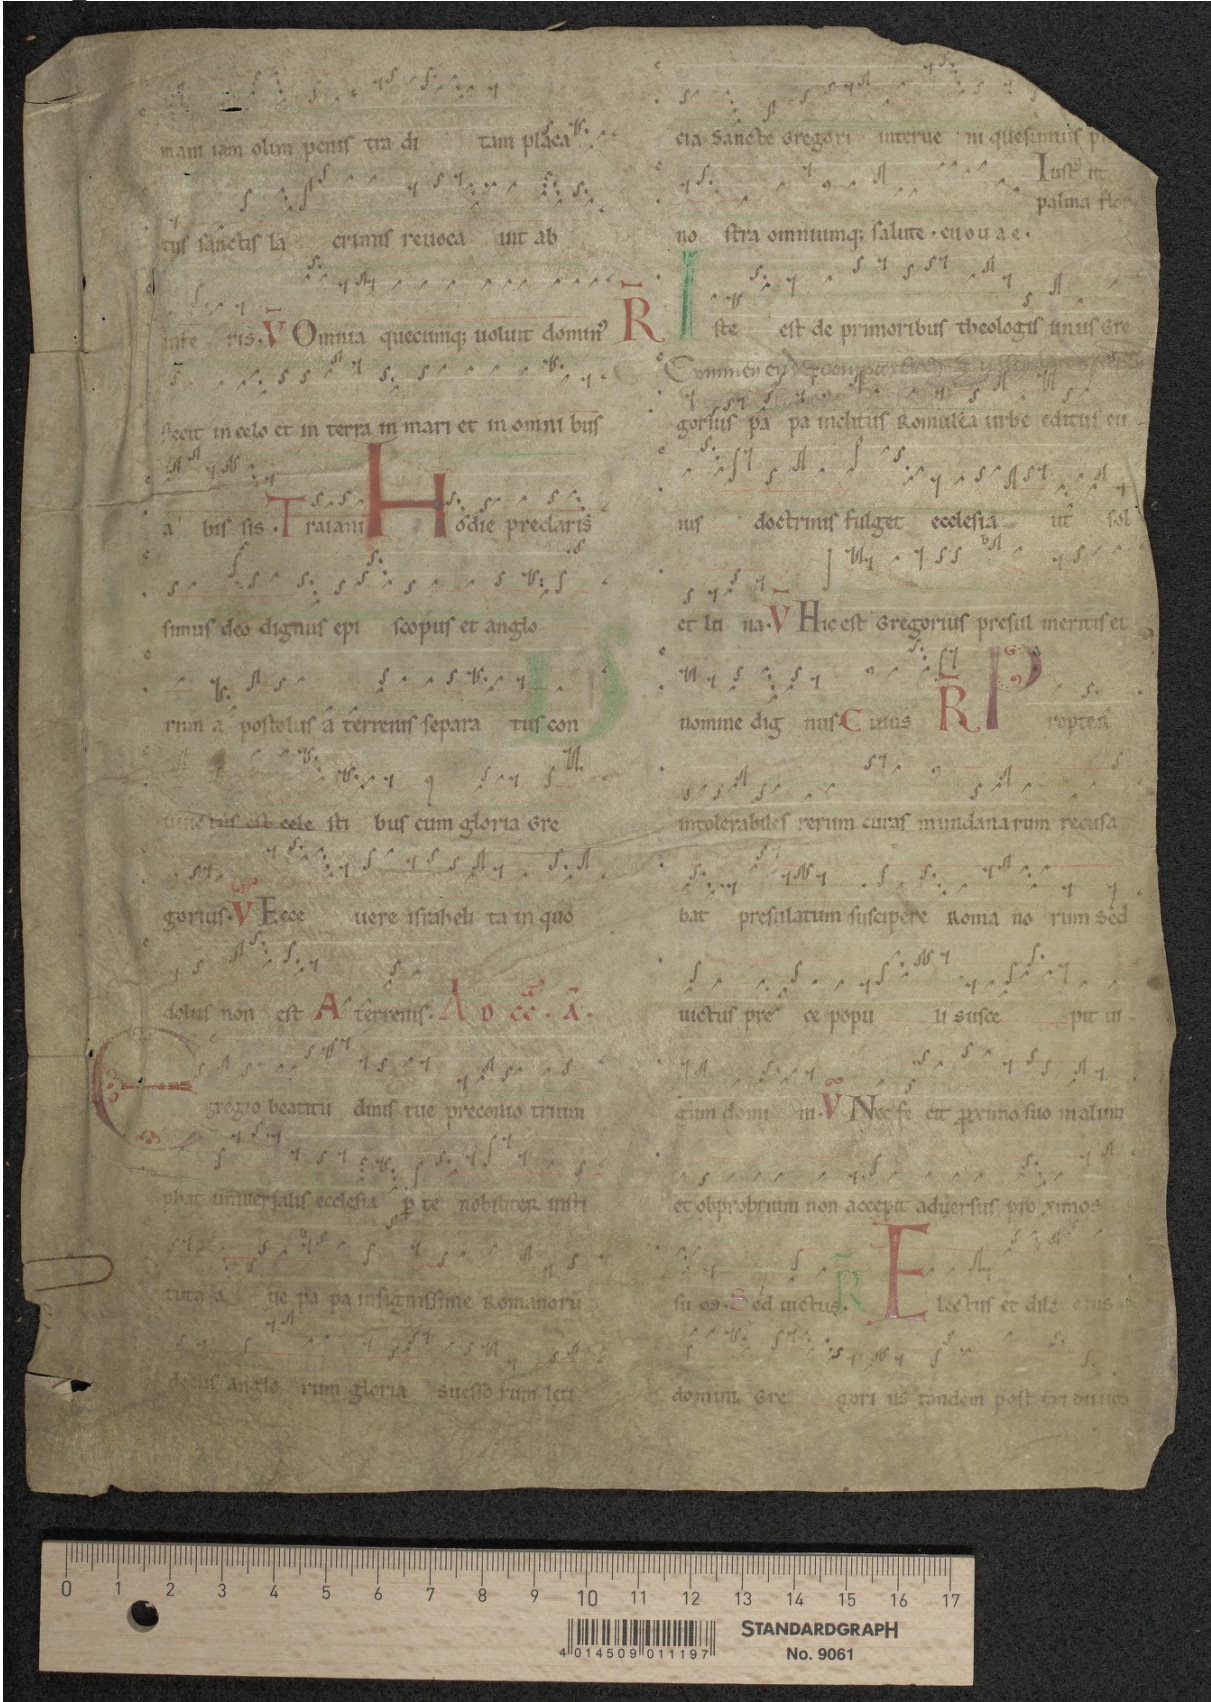 mam iam olim penis tra di tam placa
tus sanctis la crimis reuoca uit ab
infe ris. V Omnia quecumq; uoluit domin⁹
fecit in celo et in terra in mari et in omni bus
a bis sis. Traiani Hodie preclaris
simus deo dignus epi scopus et anglo
rum a postolus a terrenis separa tus con
iunctus est cele sti bus cum gloria Gre
gorius. V Ecce uere israheli ta in quo
dolus non est A terrenis.
Egregio beatitu dinis tue preconio trium
phat uniuersalis ecclesia p̱ te nobiliter insti
tuta pa pa insignissime Romanorū
decus anglo rum gloria sueuo rum
cia Sancte Gregori interue ni quesumus
Iust⁹ ut
palma flor
no stra omniumq; salute. euouae.
R Iste est de primoribus theologis unus Gre
gorius pa pa inclitus Romulea urbe editus cu
ius doctrinis fulget ecclesia ut sol
et lu na. V Hic est Gregorius presul meritis et
nomine dig nus Cuius R Propter
intolerabiles rerum curas mundana rum recusa
bat presulatum suscipere Roma no rum Sed
uictus pre ce popu li susce pit iu
gum domi ni. V Nec fe cit p̱ximo suo malum
et obprobrium non accepit aduersus pro ximos
su os. Sed uictus. R Electus et dile ctus
domini Gre gori us tandem post
4 014509 011197
STANDARDGRAPH
No. 9061
0 1 2 3 4 5 6 7 8 9 10 11 12 13 14 15 16 17